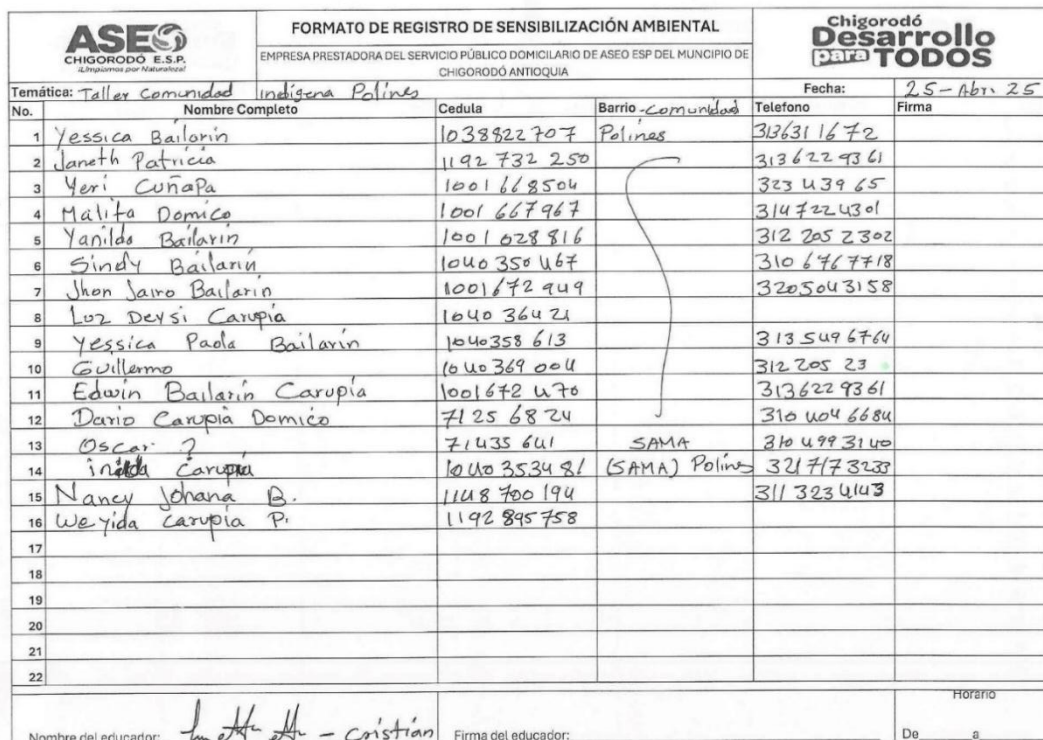 ASEO
CHIGORODÓ E.S.P.
¡Limpiamos por Naturaleza!
FORMATO DE REGISTRO DE SENSIBILIZACIÓN AMBIENTAL
EMPRESA PRESTADORA DEL SERVICIO PÚBLICO DOMICILARIO DE ASEO ESP DEL MUNCIPIO DE
CHIGORODÓ ANTIOQUIA
Chigorodó
Desarrollo
para TODOS
Temática: Taller Comunidad Indígena Polines Fecha: 25-Abr. 25
No. Nombre Completo Cedula Barrio - comunidad Telefono Firma
1 Yessica Bailarin 1038822707 Polines 3136311672
2 Janeth Patricia 1192 732 250 3136229361
3 Yeri Cuñapa 1001668504 323 439 65
4 Malita Domico 1001 667967 3147224301
5 Yanilda Bailarin 1001 028816 312 205 2302
6 Sindy Bailarin 1040 350 467 310 6767718
7 Jhon Jairo Bailarin 1001672949 3205043158
8 Luz Deysi Carupia 1040 36421
9 Yessica Paola Bailarin 1040358 613 313 5496764
10 Guillermo 1040 369 004 312 205 23
11 Edwin Bailarin Carupia 1001672 470 3136229361
12 Dario Carupia Domico 71 25 68 24 310 404 6684
13 Oscar ? 71435 641 SAMA 310 499 3140
14 Carupia 1040 3534 81 (SAMA) Polines 3217173233
15 Nancy Johana B. 1148 700 194 311 3234143
16 Weyida Carupia P. 1192 895758
17
18
19
20
21
22
Horario
Nombre del educador: - Cristián Firma del educador: De a